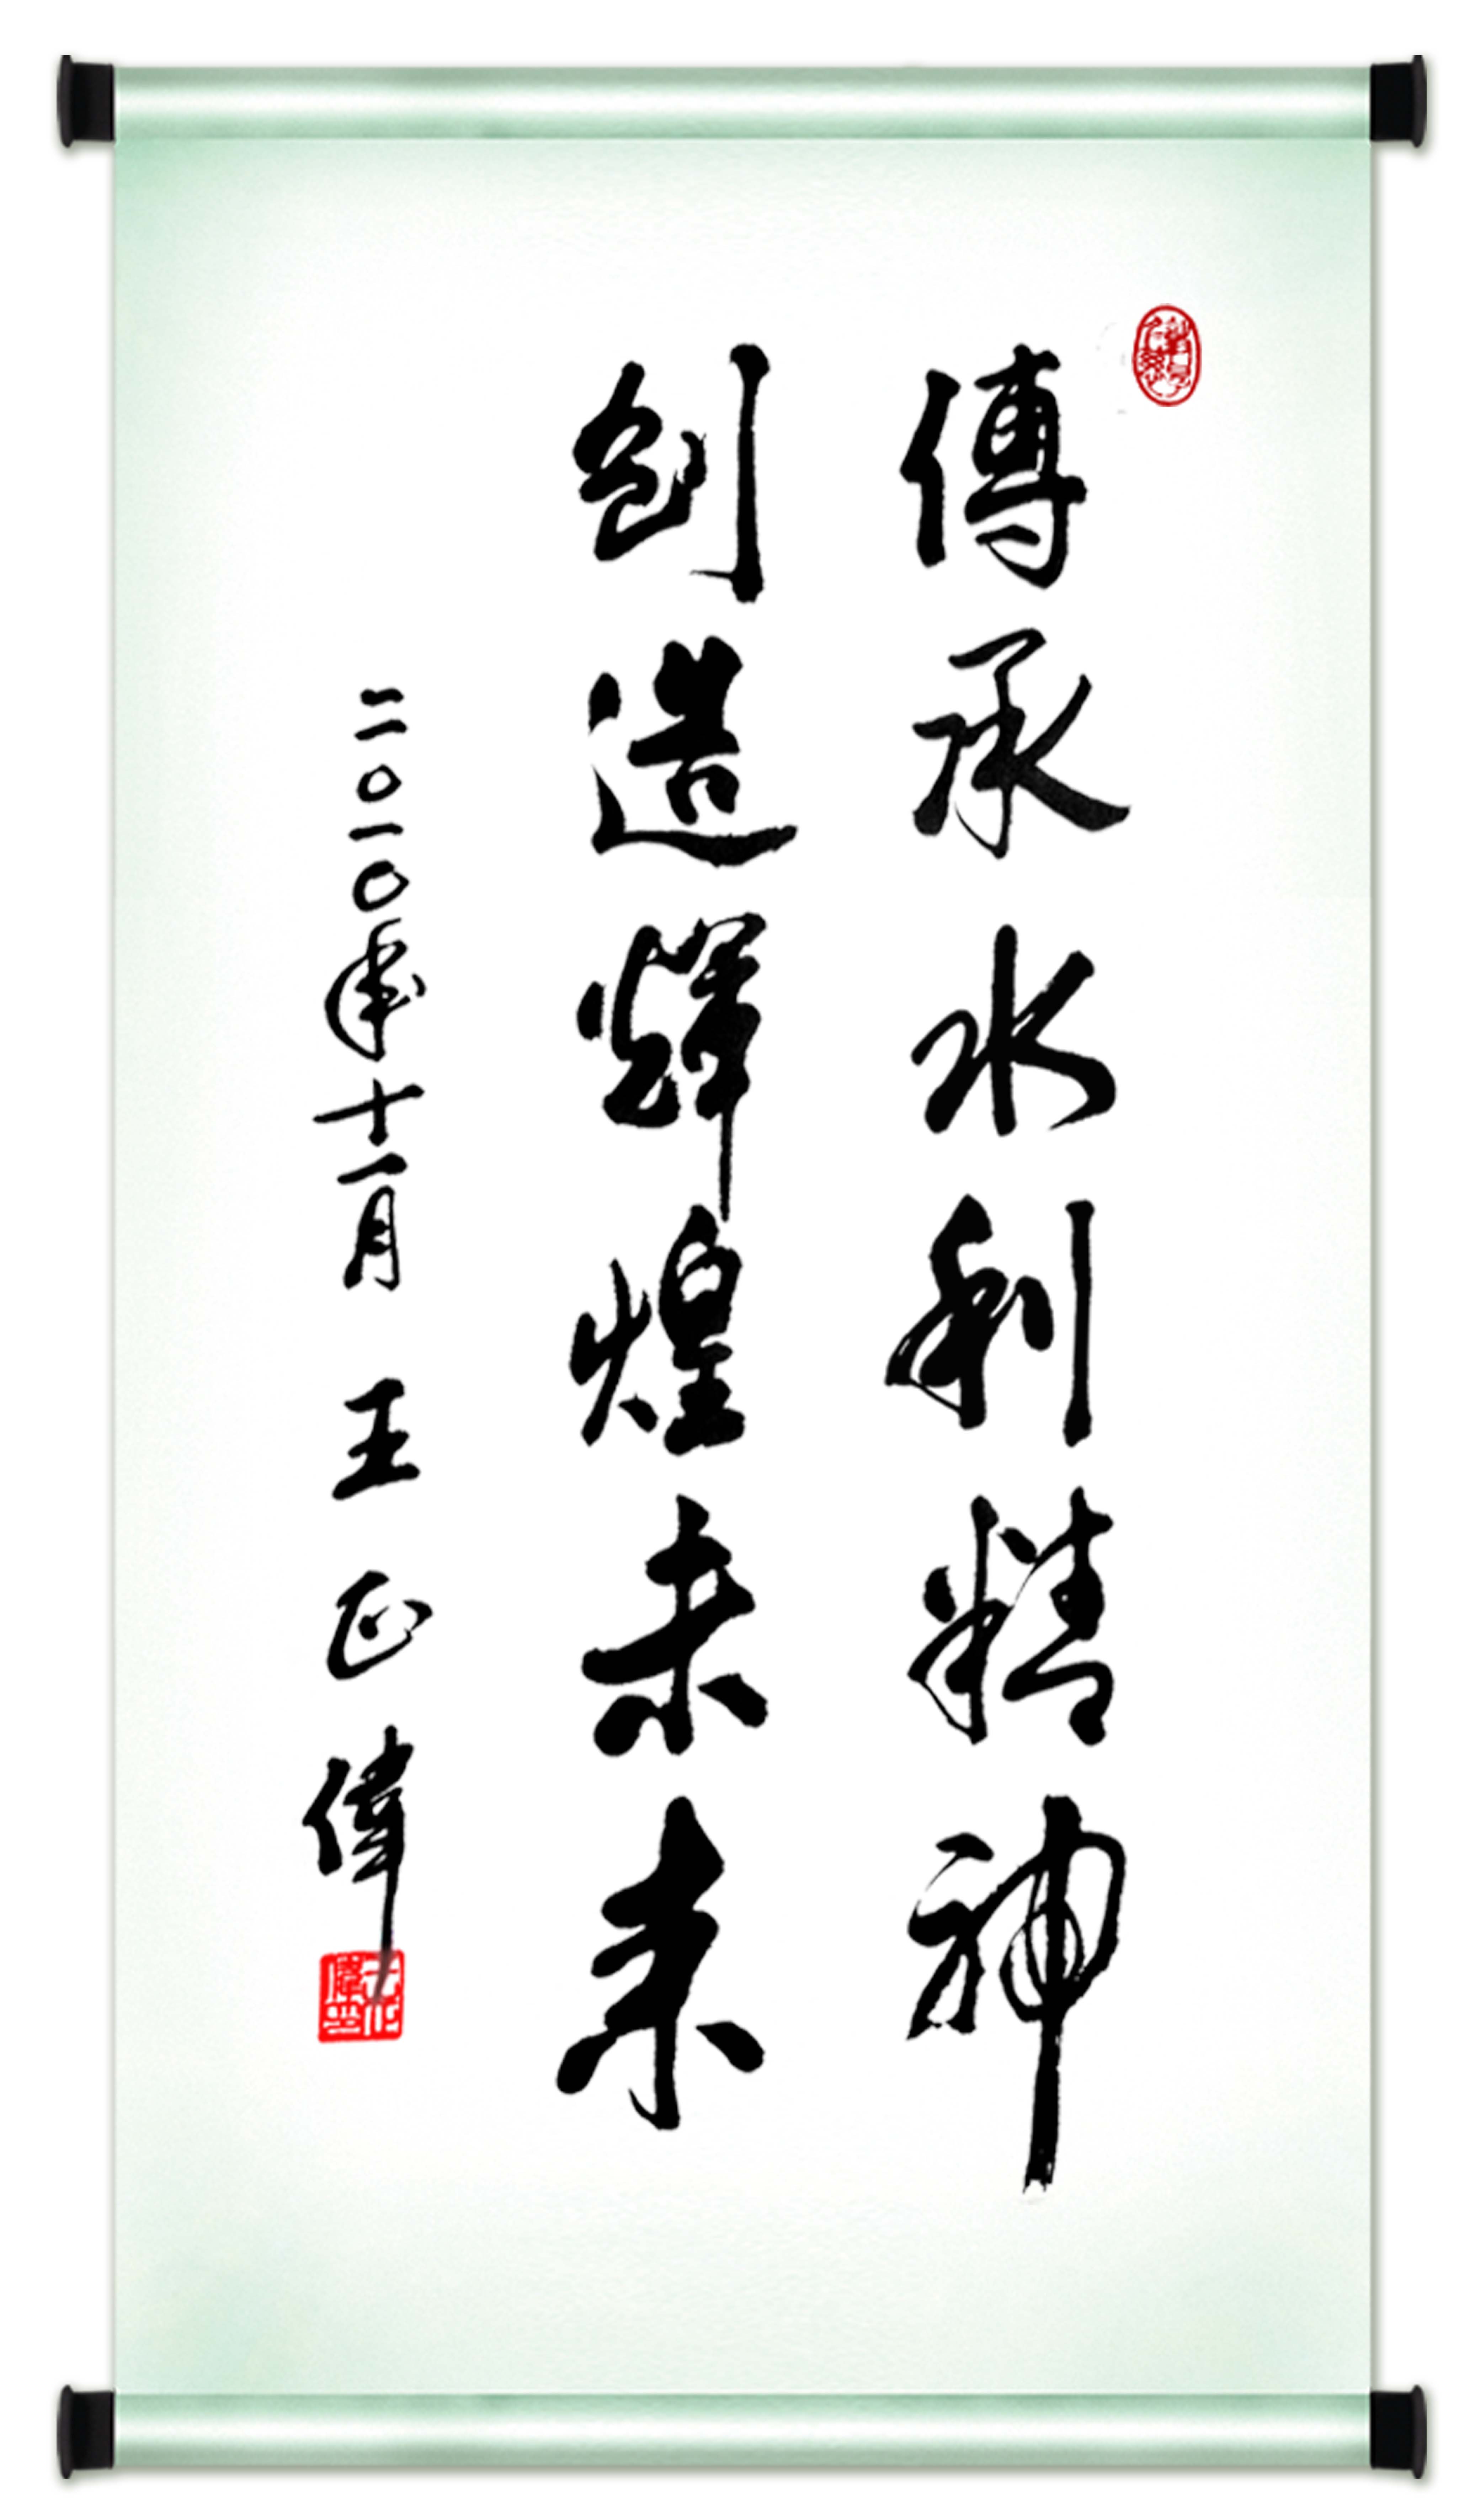 傳承水利精神
創造輝煌未来
二〇一〇年十一月 王正偉